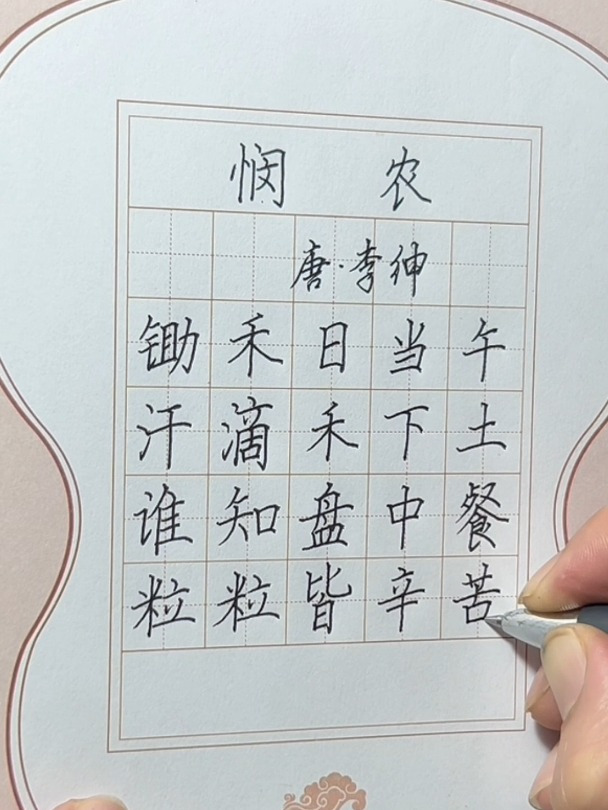 悯农
唐·李绅
锄禾日当午
汗滴禾下土
谁知盘中餐
粒粒皆辛苦